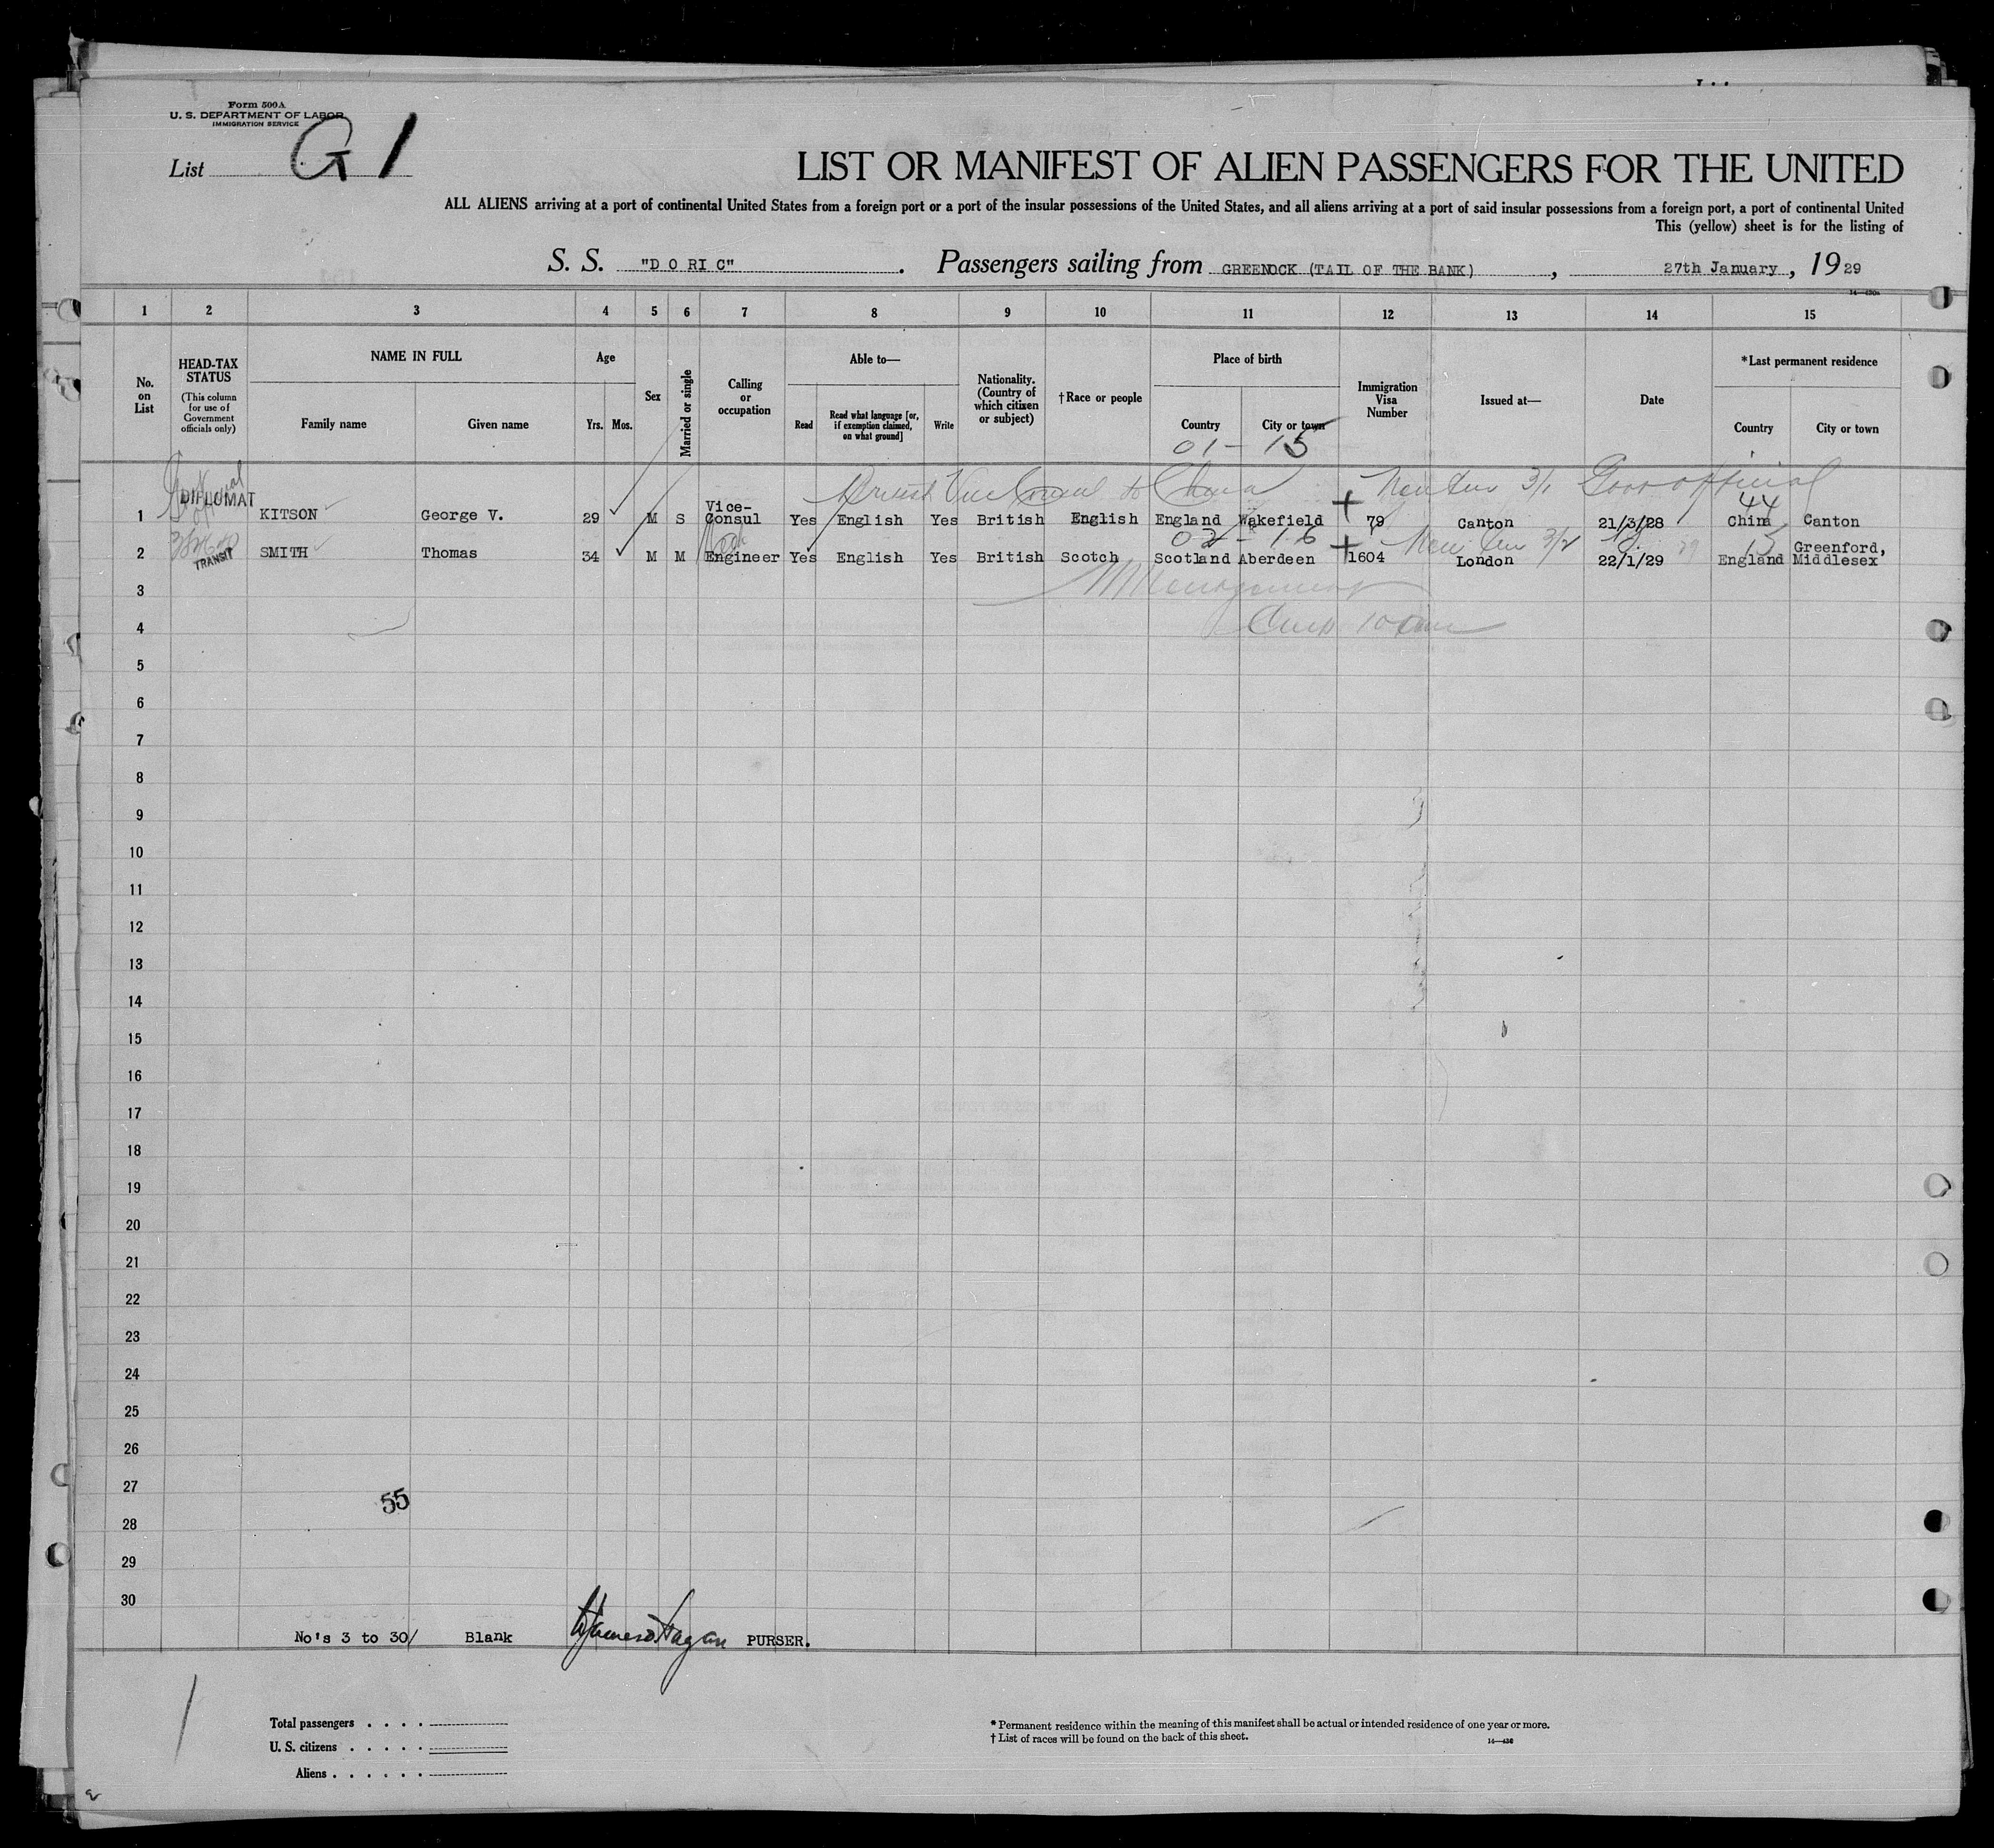 Form 500A
U. S. DEPARTMENT OF LABOR
IMMIGRATION SERVICE
List G 1
LIST OR MANIFEST OF ALIEN PASSENGERS FOR THE UNITED
ALL ALIENS arriving at a port of continental United States from a foreign port or a port of the insular possessions of the United States, and all aliens arriving at a port of said insular possessions from a foreign port, a port of continental United
This (yellow) sheet is for the listing of
S. S. "D O RI C". Passengers sailing from GREENOCK (TAIL OF THE BANK), 27th January, 1929
1 2 3 4 5 6 7 8 9 10 11 12 13 14 15
No. on List
HEAD-TAX STATUS
(This column for use of Government officials only)
NAME IN FULL
Family name Given name
Age
Yrs. Mos.
Sex
Married or single
Calling or occupation
Able to—
Read
Read what language [or, if exemption claimed, on what ground]
Write
Nationality. (Country of which citizen or subject)
†Race or people
Place of birth
Country City or town
01 - 15
Immigration Visa Number
Issued at—
Date
*Last permanent residence
Country City or town
British Vice Consul to China 3/1 Govt official
44
1 DIPLOMAT KITSON George V. 29 M S Vice-Consul Yes English Yes British English England Wakefield 79 Canton 21/3/28 China Canton
02 - 16 3/2 15
2 TRANSIT SMITH Thomas 34 M M Engineer Yes English Yes British Scotch Scotland Aberdeen 1604 London 22/1/29 England Greenford, Middlesex
3
4
5
6
7
8
9
10
11
12
13
14
15
16
17
18
19
20
21
22
23
24
25
26
27
55
28
29
30
No's 3 to 30/ Blank PURSER.
Total passengers . . . .
U. S. citizens . . . . .
Aliens . . . . . .
* Permanent residence within the meaning of this manifest shall be actual or intended residence of one year or more.
† List of races will be found on the back of this sheet.
14—430